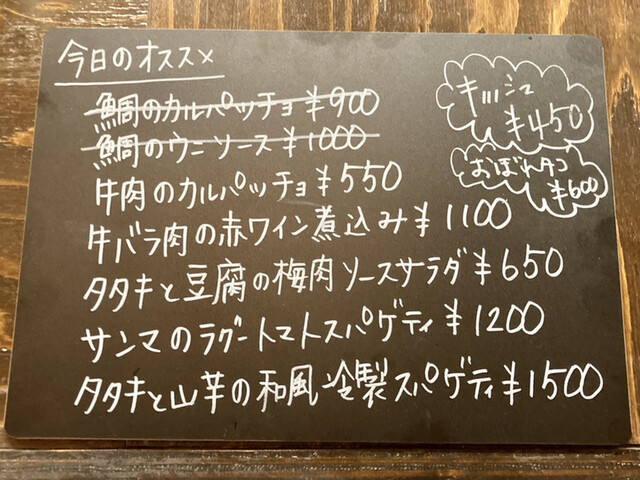 今日のオススメ
鯛のカルパッチョ ¥900
鯛のウニソース ¥1000
牛肉のカルパッチョ ¥550
牛バラ肉の赤ワイン煮込み ¥1100
タタキと豆腐の梅肉ソースサラダ ¥650
サンマのラグートマトスパゲティ ¥1200
タタキと山芋の和風冷製スパゲティ ¥1500
キッシュ
¥450
おぼれタコ
¥600